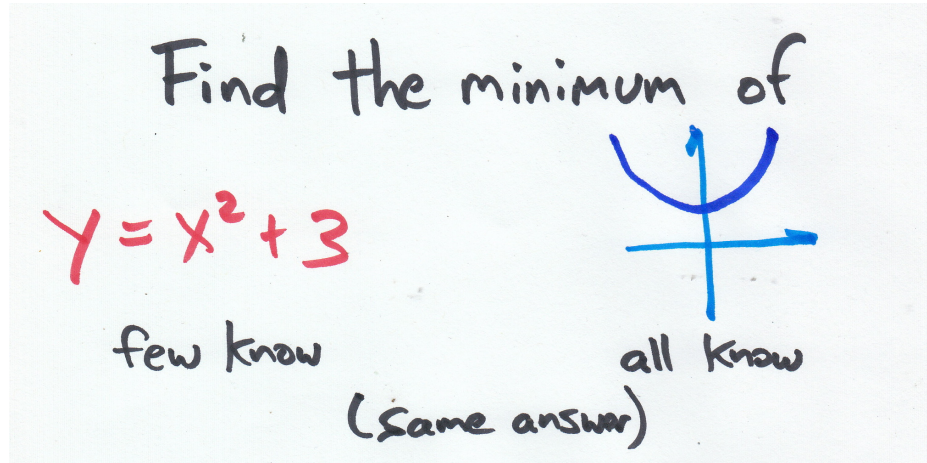 Find the minimum of
y = x² + 3
few know all know
(same answer)